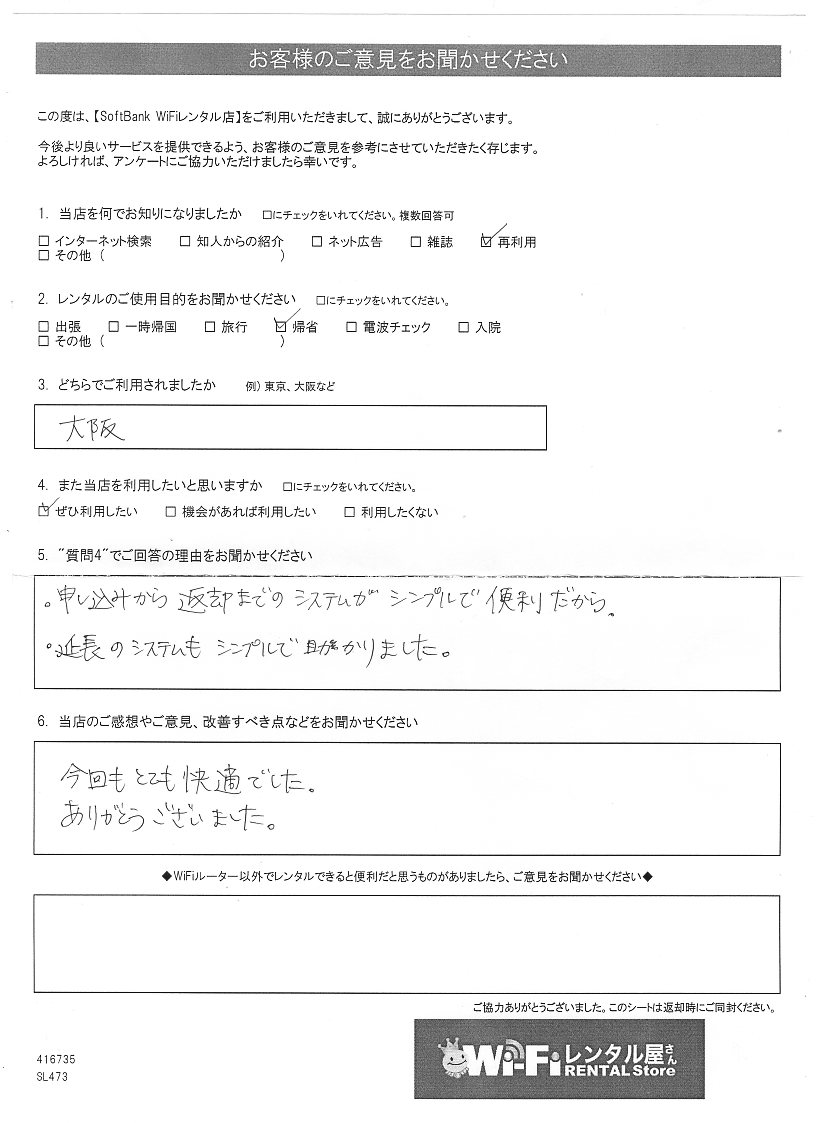 お客様のご意見をお聞かせください
この度は、【SoftBank WiFiレンタル店】をご利用いただきまして、誠にありがとうございます。
今後より良いサービスを提供できるよう、お客様のご意見を参考にさせていただきたく存じます。
よろしければ、アンケートにご協力いただけましたら幸いです。
1. 当店を何でお知りになりましたか □にチェックをいれてください。複数回答可
□ インターネット検索 □ 知人からの紹介 □ ネット広告 □ 雑誌 ☑ 再利用
□ その他 ( )
2. レンタルのご使用目的をお聞かせください □にチェックをいれてください。
□ 出張 □ 一時帰国 □ 旅行 ☑ 帰省 □ 電波チェック □ 入院
□ その他 ( )
3. どちらでご利用されましたか 例) 東京、大阪など
大阪
4. また当店を利用したいと思いますか □にチェックをいれてください。
☑ ぜひ利用したい □ 機会があれば利用したい □ 利用したくない
5. "質問4"でご回答の理由をお聞かせください
。申し込みから返却までのシステムがシンプルで便利だから。
。延長のシステムもシンプルで助かりました。
6. 当店のご感想やご意見、改善すべき点などをお聞かせください
今回もとても快適でした。
ありがとうございました。
◆WiFiルーター以外でレンタルできると便利だと思うものがありましたら、ご意見をお聞かせください◆
ご協力ありがとうございました。このシートは返却時にご同封ください。
416735
SL473
Wi-Fiレンタル屋さん
RENTAL Store